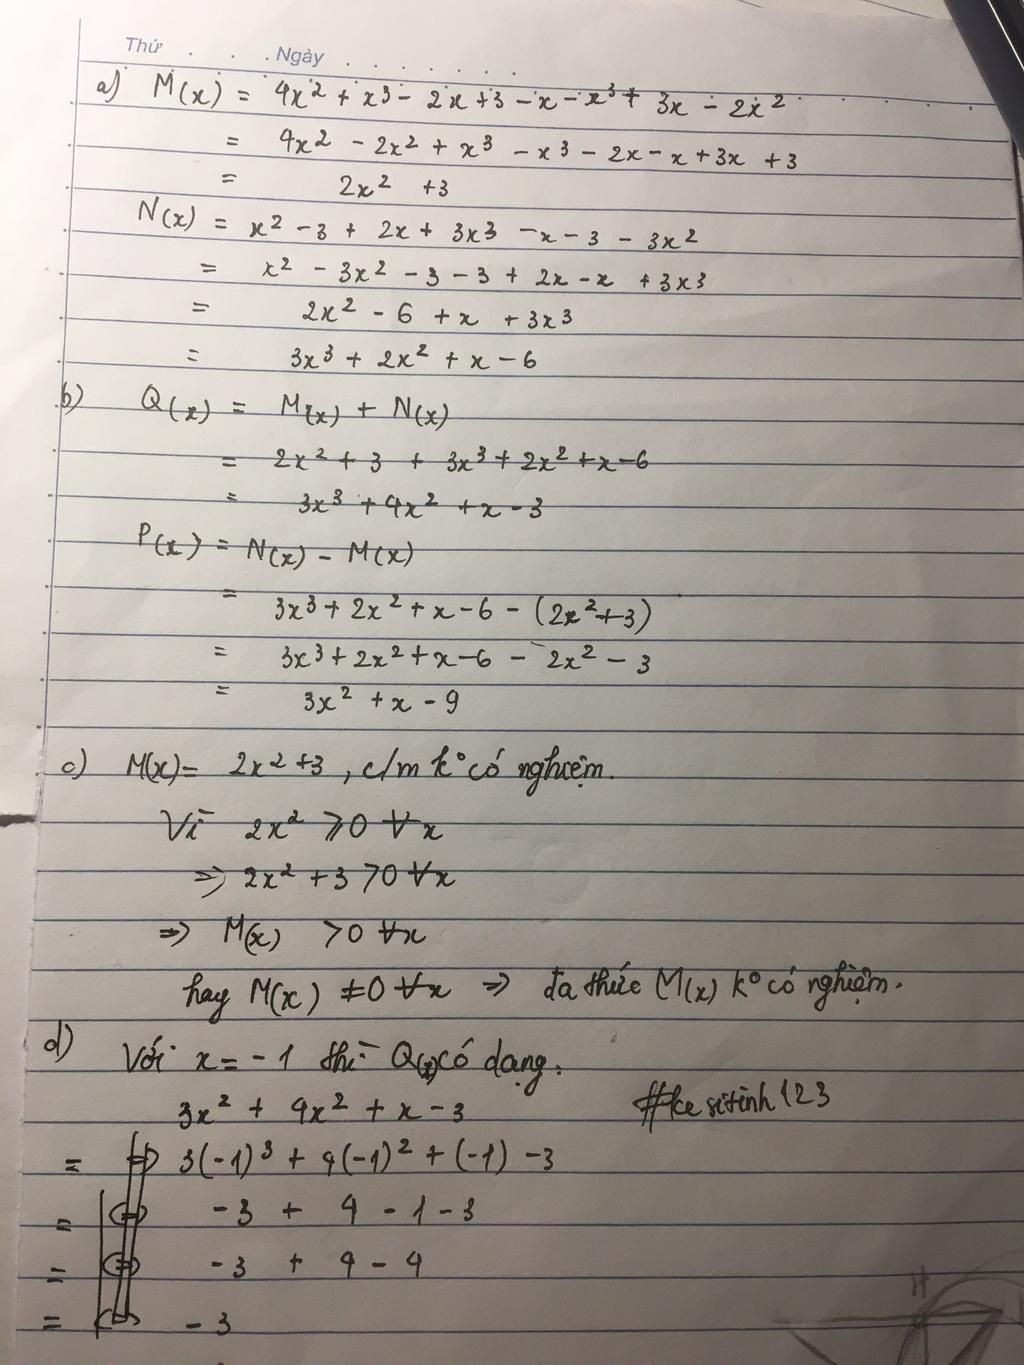 Thứ . . . . Ngày . . . . . . .
a) M(x) = 4x² + x³ - 2x + 3 - x - x³ + 3x - 2x²
= 4x² - 2x² + x³ - x³ - 2x - x + 3x + 3
= 2x² + 3
N(x) = x² - 3 + 2x + 3x³ - x - 3 - 3x²
= x² - 3x² - 3 - 3 + 2x - x + 3x³
= 2x² - 6 + x + 3x³
= 3x³ + 2x² + x - 6
b) Q(x) = M(x) + N(x)
= 2x² + 3 + 3x³ + 2x² + x - 6
= 3x³ + 4x² + x - 3
P(x) = N(x) - M(x)
= 3x³ + 2x² + x - 6 - (2x² + 3)
= 3x³ + 2x² + x - 6 - 2x² - 3
= 3x² + x - 9
c) M(x) = 2x² + 3 , c/m k° có nghiệm.
Vì 2x² ⩾ 0 ∀x
⇒ 2x² + 3 > 0 ∀x
⇒ M(x) > 0 ∀x
hay M(x) ≠ 0 ∀x ⇒ đa thức M(x) k° có nghiệm.
d) Với x = -1 thì Q(x) có dạng:
3x² + 4x² + x - 3
#kesitinh123
= 3(-1)³ + 4(-1)² + (-1) - 3
= -3 + 4 - 1 - 3
= -3 + 4 - 4
= -3
H